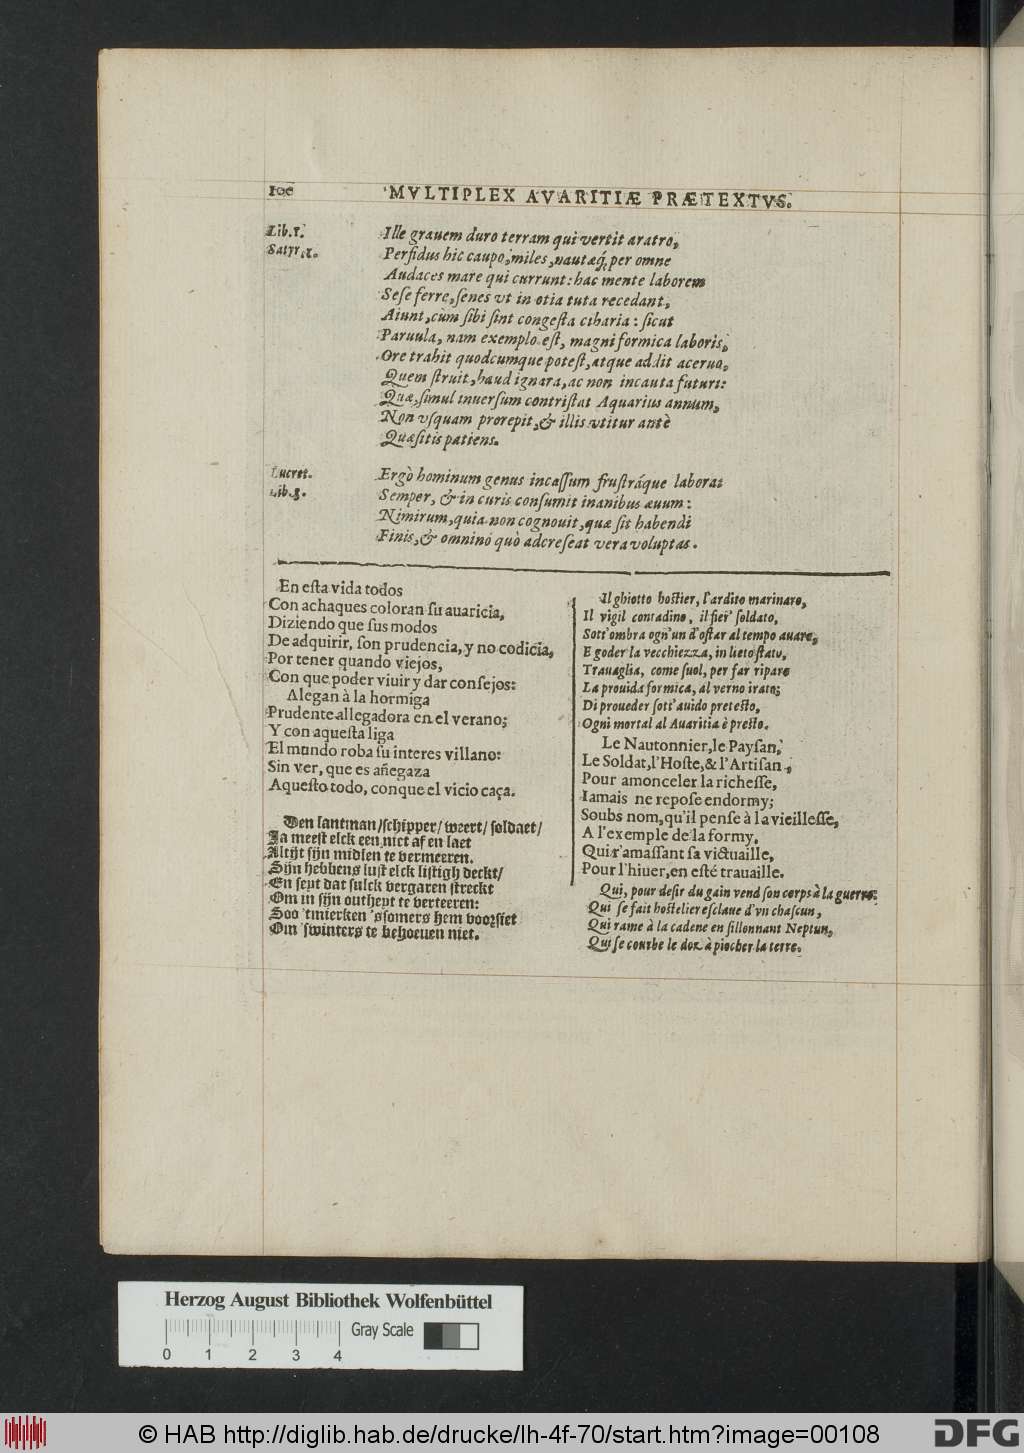 100
MVLTIPLEX AVARITIÆ PRÆTEXTVS.
Lib. 1.
Satyr. 1.
Ille grauem duro terram qui vertit aratro,
Perfidus hic caupo, miles, nautæq́, per omne
Audaces mare qui currunt: hac mente laborem
Seſe ferre, ſenes vt in otia tuta recedant,
Aiunt, cum ſibi ſint congeſta cibaria: ſicut
Paruula, nam exemplo eſt, magni formica laboris,
Ore trahit quodcumque poteſt, atque addit aceruo,
Quem ſtruit, haud ignara, ac non incauta futuri:
Quæ, ſimul inuerſum contriſtat Aquarius annum,
Non vſquam prorepit, & illis vtitur antè
Quæſitis patiens.
Lucret.
Lib. 5.
Ergò hominum genus incaſſum fruſtráque laborat
Semper, & in curis conſumit inanibus æuum:
Nimirum, quia non cognouit, quæ ſit habendi
Finis, & omnino quò adcreſcat vera voluptas.
En eſta vida todos
Con achaques coloran ſu auaricia,
Diziendo que ſus modos
De adquirir, ſon prudencia, y no codicia,
Por tener quando viejos,
Con que poder viuir y dar conſejos:
Alegan à la hormiga
Prudente allegadora en el verano;
Y con aqueſta liga
El mundo roba ſu interes villano:
Sin ver, que es añegaza
Aqueſto todo, con que el vicio caça.
Den lantman/ ſchipper/ weert/ ſoldaet/
Ja meeſt elck een niet af en laet
Altijt ſijn midlen te vermeeren.
Sijn hebbens luſt elck liſtigh deckt/
En ſeyt dat ſulck vergaren ſtreckt
Om in ſijn outheyt te verteeren:
Soo 'tmierken 'sſomers hem voorſiet
Om 'swinters te behoeuen niet.
Il ghiotto hoſtier, l'ardito marinaro,
Il vigil contadino, il fier' ſoldato,
Sott'ombra ogn'un d'oſtar al tempo auaro,
E goder la vecchiezza, in lieto ſtato,
Trauaglia, come ſuol, per far riparo
La prouida formica, al verno irato;
Di proueder ſott'auido preteſto,
Ogni mortal al Auaritia è preſto.
Le Nautonnier, le Payſan,
Le Soldat, l'Hoſte, & l'Artiſan,
Pour amonceler la richeſſe,
Iamais ne repoſe endormy;
Soubs nom, qu'il penſe à la vieilleſſe,
A l'exemple de la formy,
Qui r'amaſſant ſa victuaille,
Pour l'hiuer, en eſté trauaille.
Qui, pour deſir du gain vend ſon corps à la guerre:
Qui ſe fait hoſtelier eſclaue d'vn chaſcun,
Qui rame à la cadene en ſillonnant Neptun,
Qui ſe courbe le dox à piocher la terre.
Herzog August Bibliothek Wolfenbüttel
Gray Scale
0 1 2 3 4
© HAB http://diglib.hab.de/drucke/lh-4f-70/start.htm?image=00108
DFG